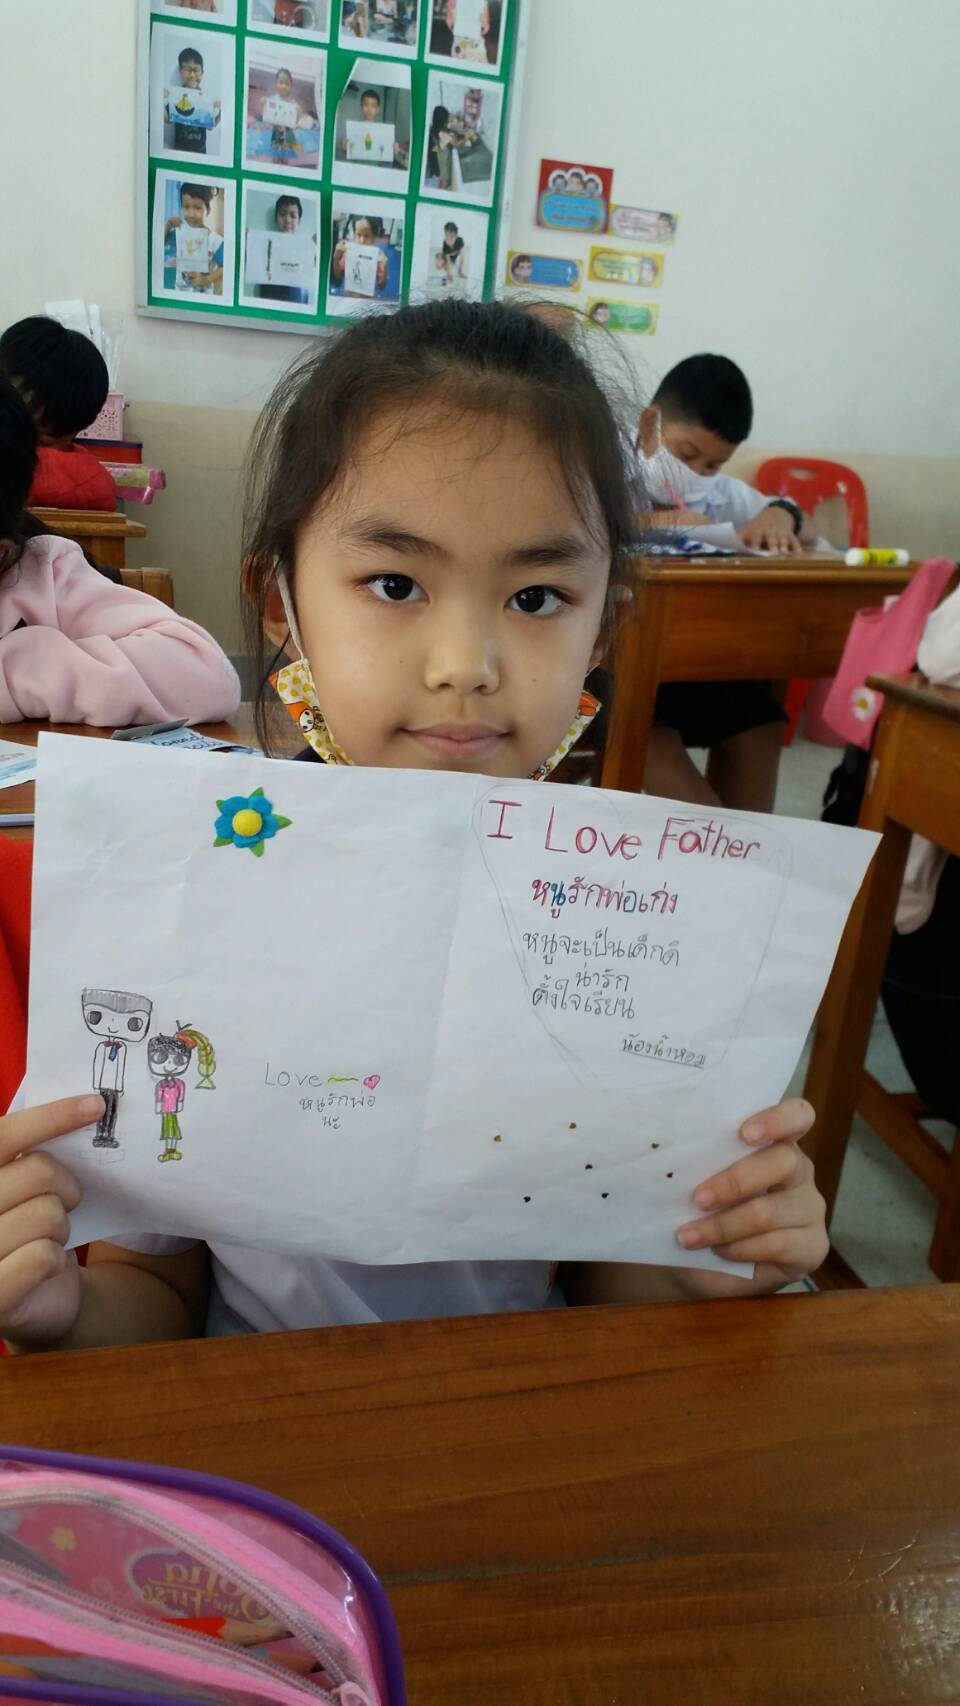 I Love Father
หนูรักพ่อเก่ง
หนูจะเป็นเด็กดี
น่ารัก
ตั้งใจเรียน
น้องน้ำหอม
Love
หนูรักพ่อ
นะ